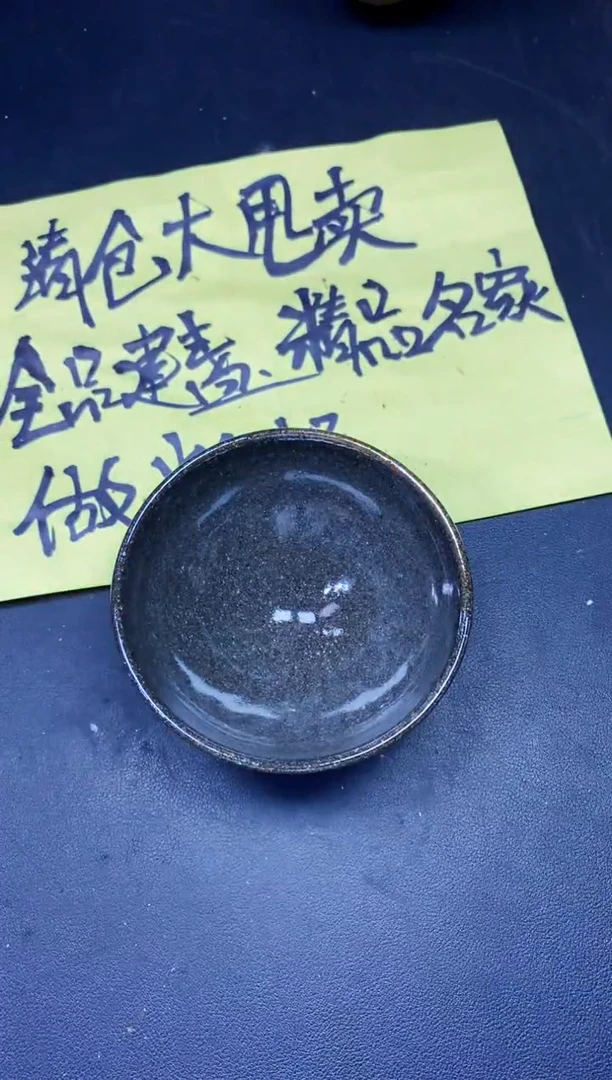 清仓大甩卖
全品建盏、精品名家
做